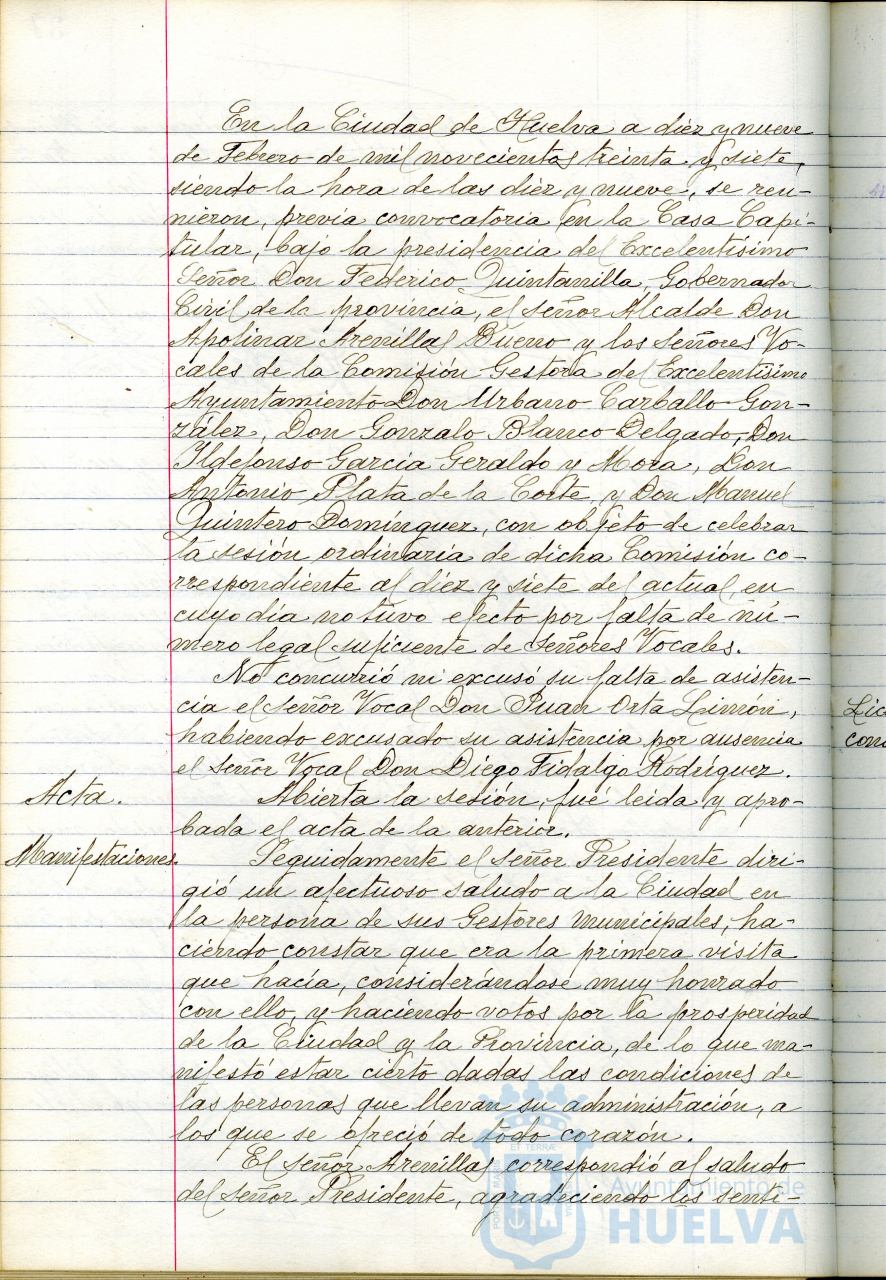 En la Ciudad de Huelva a diez y nueve
de Febrero de mil novecientos treinta y siete,
siendo la hora de las diez y nueve, se reu-
nieron, previa convocatoria en la Casa Capi-
tular, bajo la presidencia del Excelentísimo
Señor Don Federico Quintanilla, Gobernador
Civil de la provincia, el señor Alcalde Don
Apolinar Arenillas Bueno y los señores Vo-
cales de la Comisión Gestora del Excelentísimo
Ayuntamiento Don Urbano Carballo Gon-
zález, Don Gonzalo Blanco Delgado, Don
Ildefonso García Geraldo y Mora, Don
Antonio Plata de la Corte, y Don Manuel
Quintero Domínguez, con objeto de celebrar
la sesión ordinaria de dicha Comisión co-
rrespondiente al diez y siete del actual, en
cuyo día no tuvo efecto por falta de nú-
mero legal suficiente de señores Vocales.
No concurrió ni excusó su falta de asisten-
cia el señor Vocal Don Juan Orta Limón,
habiendo excusado su asistencia por ausencia
el señor Vocal Don Diego Fidalgo Rodríguez.
Acta. Abierta la sesión, fué leida y apro-
bada el acta de la anterior.
Manifestaciones. Seguidamente el señor Presidente diri-
gió un afectuoso saludo a la Ciudad en
la persona de sus Gestores municipales, ha-
ciendo constar que era la primera visita
que hacía, considerándose muy honrado
con ello, y haciendo votos por la prosperidad
de la Ciudad y la Provincia, de lo que ma-
nifestó estar cierto dadas las condiciones de
las personas que llevan su administración, a
los que se ofreció de todo corazón.
El señor Arenillas correspondió al saludo
del señor Presidente, agradeciendo los senti-
Lic
conc
Ayuntamiento de
HUELVA